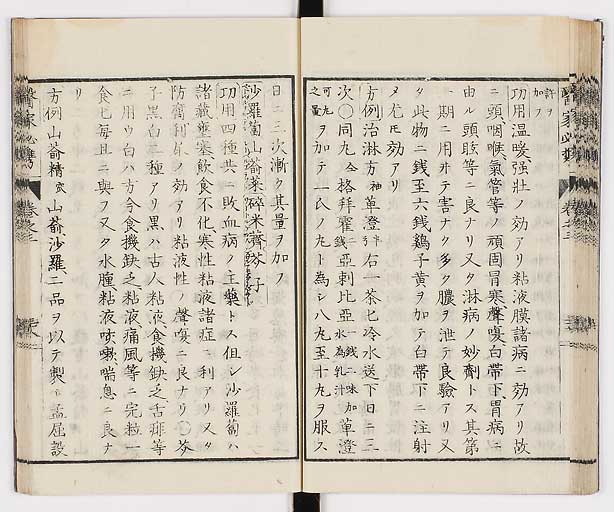 許ヲ
加フ
功用温暖強壮ノ効アリ粘液膜諸病ニ効アリ故
ニ頭咽喉氣管等ノ頑固冒寒聲嗄白帶下胃病ニ
由ル頭眩等ニ良ナリ又タ淋病ノ妙劑トス其第
一期ニ用井テ害ナク多ク膿ヲ泄テ良驗アリ又
タ此物二銭至六銭鷄子黄ヲ加テ白帶下ニ注射
ヲ尤モ効アリ
方例治淋方 単澄 右一茶匕冷水送下日ニ三
次〇同丸 格拜霍 亞刺比亞 水為乳汁 加單澄
可丸
之量 ヲ加テ一氏ノ丸ト為シ八丸至十丸ヲ服ス
日二三次漸ク其量ヲ加フ
沙羅蔔山萮菜碎米薺芥子
功用四種共ニ敗血病ノ主藥トス但シ沙羅蔔ハ
諸藏壅寒飲食不化寒性粘液諸症ニ利アリ又タ
防腐利尿ノ効アリ粘液性ノ聲嗄ニ良ナリ〇芥
子黒白二種アリ黒ハ古人粘液食機缺乏舌痱等
ニ用ウ白ハ方今食機缺乏粘液痛風等ニ完粒一
食匕毎且ニ與フ又タ水腫粘液咳嗽喘息ニ良ナ
リ
方例山萮精 山萮沙羅二品ヲ以テ製ス孟屈設
醫家必携
卷之三